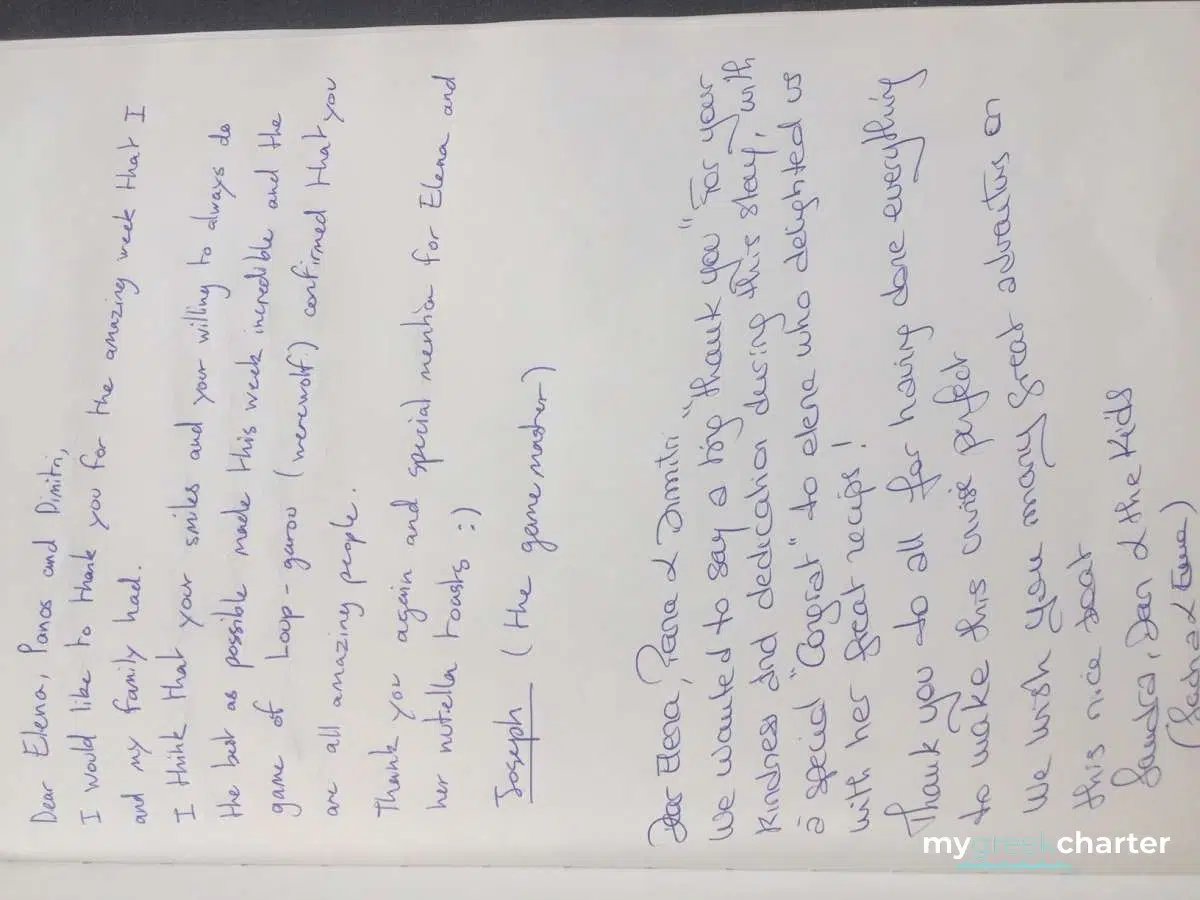 Dear Elena, Panos and Dimitri,
I would like to thank you for the amazing week that I
and my family had.
I think that your smiles and your willing to always do
the best as possible made this week incredible and the
game of Loup-garou (werewolf.) confirmed that you
are all amazing people.
Thank you again and special mention for Elena and
her nutella toasts :)
Joseph (the game master)
Dear Elena, Pana & Dimitri
We wanted to say a big "thank you" For your
kindness and dedication during this stay, with
a special "Congrat" to elena who delighted us
with her great recips!
Thank you to all for having done everything
to make this cruise perfect
We wish you many great advantures on
this nice boat
Sandra, Dan & the Kids
mygreekcharter